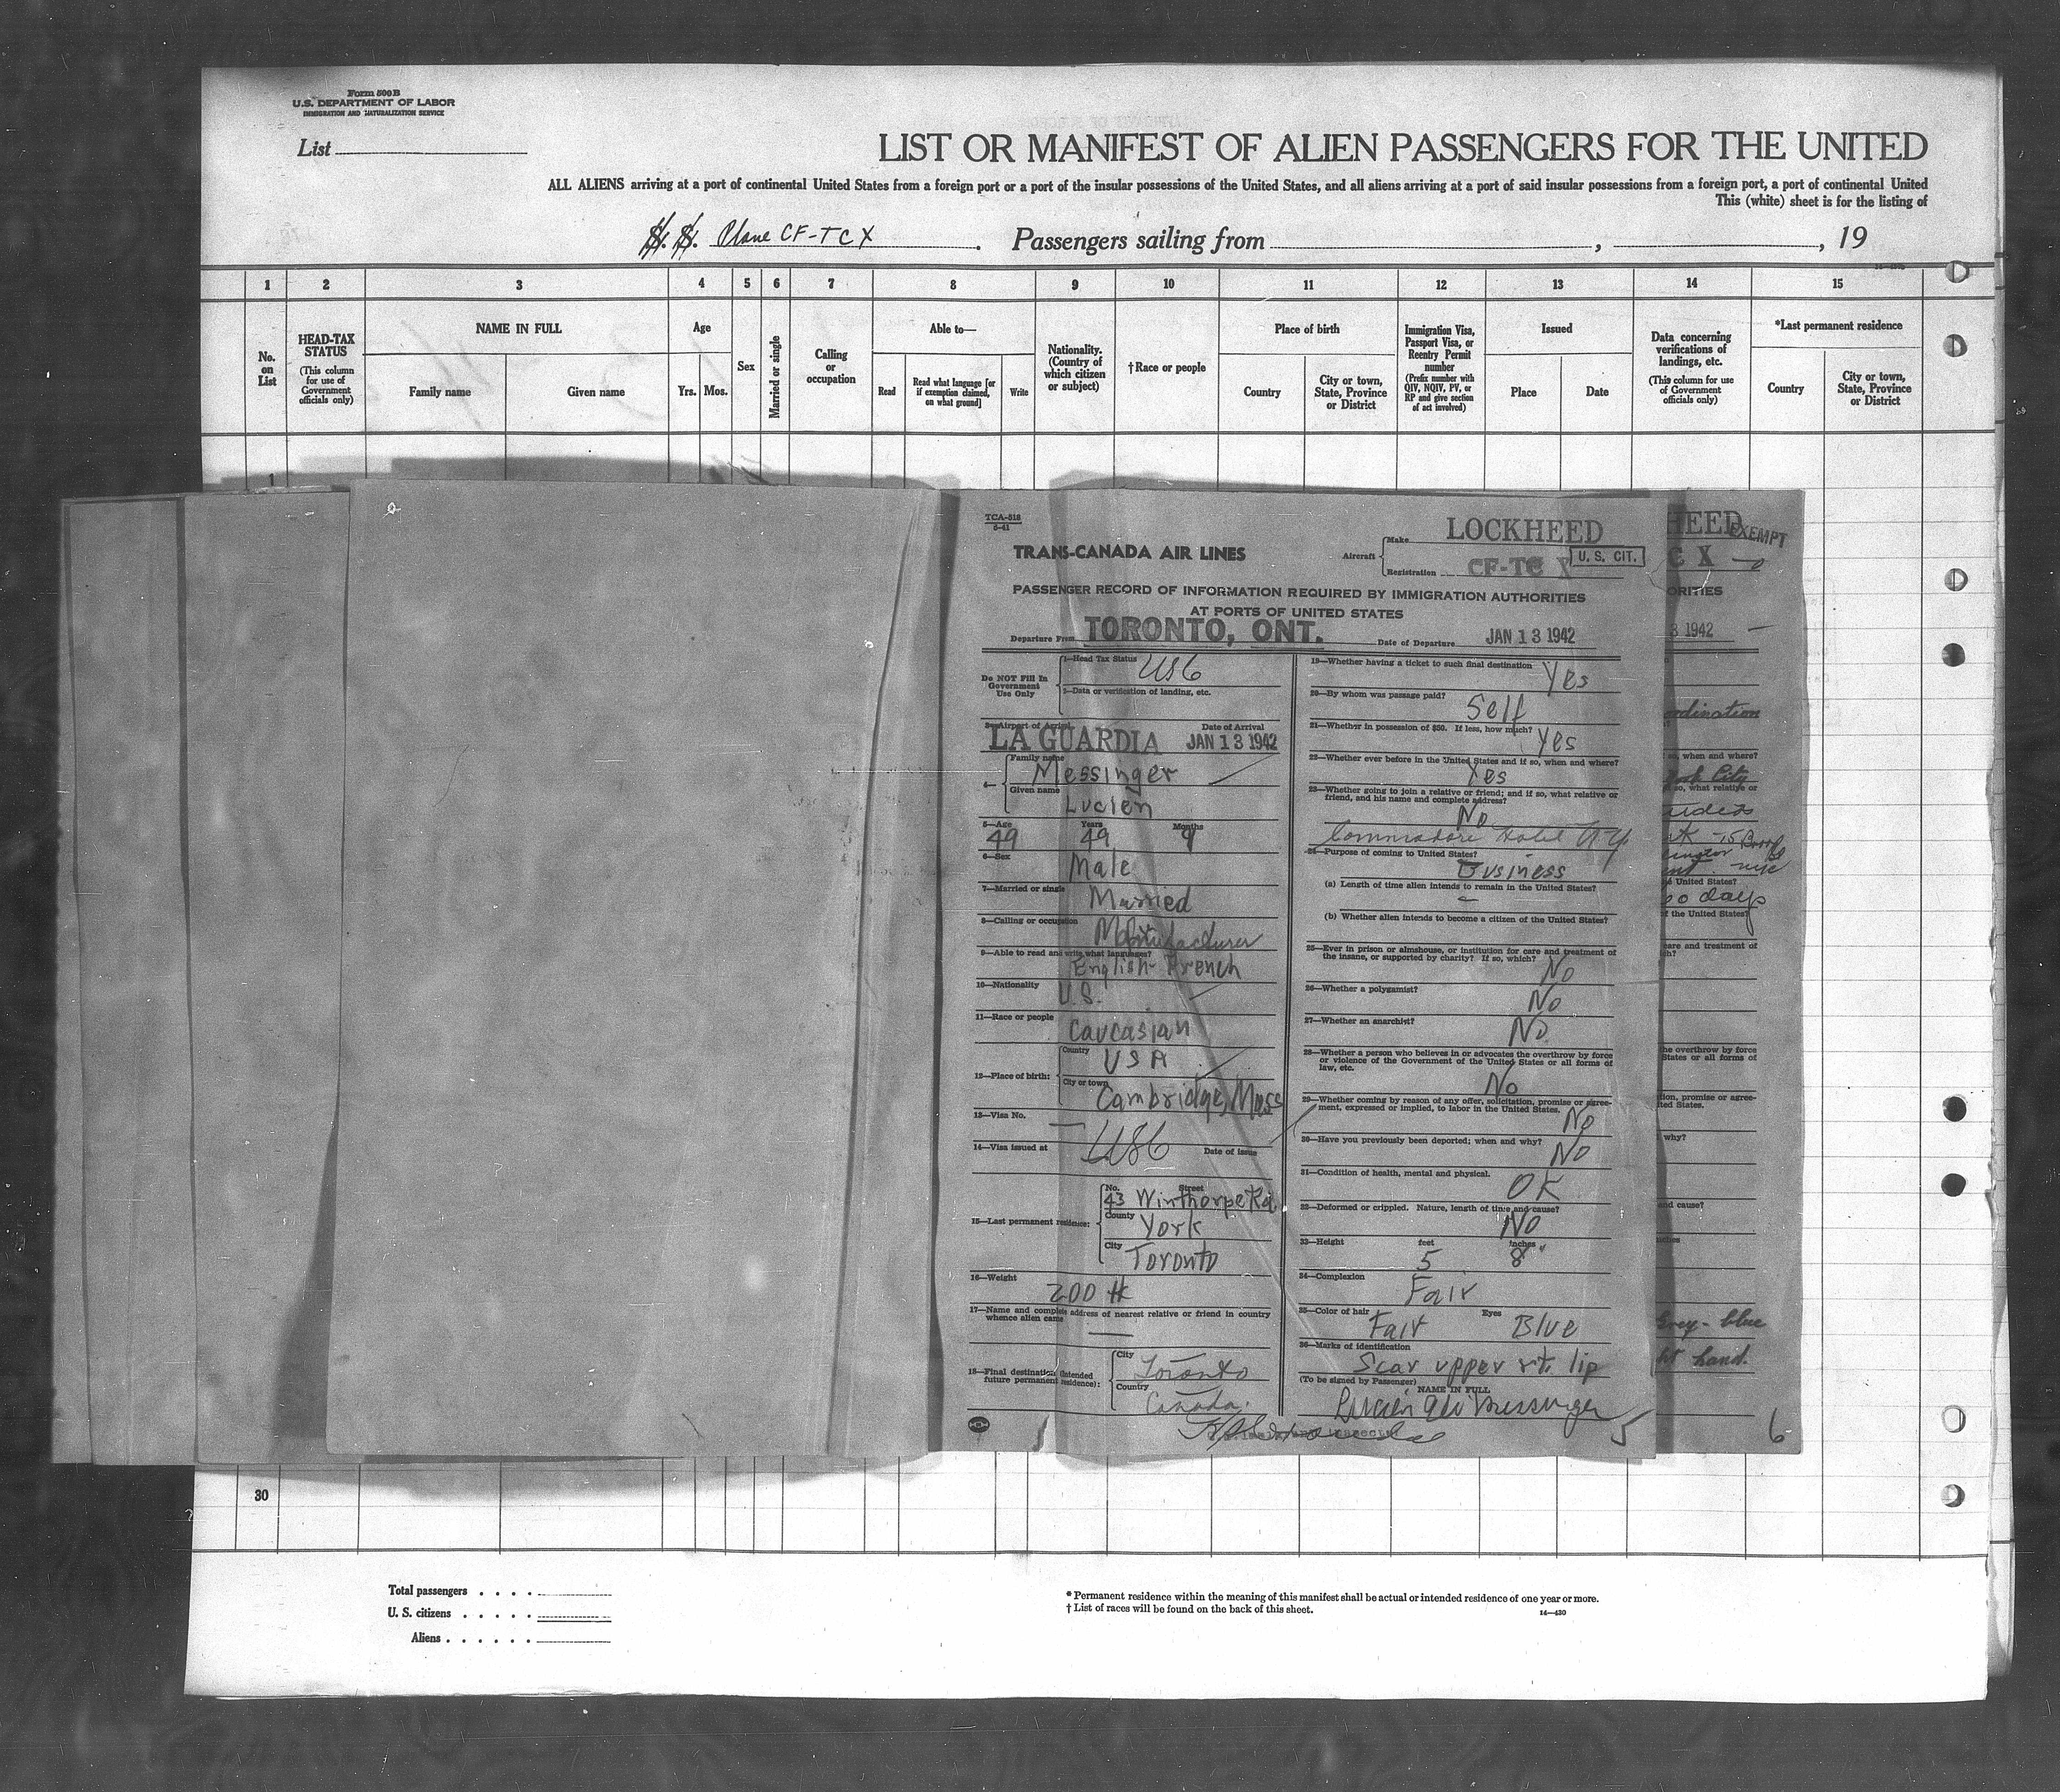 Form 500 B
U.S. DEPARTMENT OF LABOR
IMMIGRATION AND NATURALIZATION SERVICE
List
LIST OR MANIFEST OF ALIEN PASSENGERS FOR THE UNITED
ALL ALIENS arriving at a port of continental United States from a foreign port or a port of the insular possessions of the United States, and all aliens arriving at a port of said insular possessions from a foreign port, a port of continental United
This (white) sheet is for the listing of
S. S. Plane CF-TCX. Passengers sailing from , , 19
1 2 3 4 5 6 7 8 9 10 11 12 13 14 15
No. on List
HEAD-TAX STATUS
(This column for use of Government officials only)
NAME IN FULL
Family name
Given name
Age
Yrs. Mos.
Sex
Married or single
Calling or occupation
Able to—
Read
Read what language [or if exemption claimed, on what ground]
Write
Nationality. (Country of which citizen or subject)
†Race or people
Place of birth
Country
City or town, State, Province or District
Immigration Visa, Passport Visa, or Reentry Permit number
(Prefix number with QIV, NQIV, PV, or RP and give section of act involved)
Issued
Place
Date
Data concerning verifications of landings, etc.
(This column for use of Government officials only)
*Last permanent residence
Country
City or town, State, Province or District
1
TCA-518
5-41
TRANS-CANADA AIR LINES
Aircraft
Make LOCKHEED
Registration CF-TC X
U. S. CIT.
PASSENGER RECORD OF INFORMATION REQUIRED BY IMMIGRATION AUTHORITIES
AT PORTS OF UNITED STATES
Departure From TORONTO, ONT. Date of Departure JAN 13 1942
Do NOT Fill In Government Use Only
1—Head Tax Status USC
2—Data or verification of landing, etc.
3—Airport of Arrival Date of Arrival
LA GUARDIA JAN 13 1942
4—
Family name
Messinger
Given name
Lucien
5—Age Years Months
49 49 9
6—Sex Male
7—Married or single Married
8—Calling or occupation Manufacturer
9—Able to read and write what languages?
English-French
10—Nationality U.S.
11—Race or people Caucasian
12—Place of birth:
Country USA
City or town Cambridge, Mass
13—Visa No. —
14—Visa issued at USC Date of issue
15—Last permanent residence:
No. Street
43 Winthorpe Rd
County York
City Toronto
16—Weight 200 #
17—Name and complete address of nearest relative or friend in country whence alien came
—
18—Final destination (Intended future permanent residence):
City Toronto
Country Canada.
19—Whether having a ticket to such final destination Yes
20—By whom was passage paid?
Self
21—Whether in possession of $50. If less, how much? Yes
22—Whether ever before in the United States and if so, when and where?
Yes
23—Whether going to join a relative or friend; and if so, what relative or friend, and his name and complete address?
No
Commodore Hotel N-Y
24—Purpose of coming to United States?
Business
(a) Length of time alien intends to remain in the United States?
(b) Whether alien intends to become a citizen of the United States?
25—Ever in prison or almshouse, or institution for care and treatment of the insane, or supported by charity? If so, which? No
26—Whether a polygamist? No
27—Whether an anarchist? No
28—Whether a person who believes in or advocates the overthrow by force or violence of the Government of the United States or all forms of law, etc. No
29—Whether coming by reason of any offer, solicitation, promise or agreement, expressed or implied, to labor in the United States. No
30—Have you previously been deported; when and why? No
31—Condition of health, mental and physical. OK
32—Deformed or crippled. Nature, length of time and cause? No
33—Height feet inches
5 8"
34—Complexion Fair
35—Color of hair Eyes
Fair Blue
36—Marks of identification
Scar upper rt. lip
(To be signed by Passenger) NAME IN FULL
5
HEED EXEMPT
C X
ORITIES
3 1942
so, when and where?
York City
so, what relative or
United States?
60 days
f the United States?
care and treatment of
the overthrow by force
States or all forms of
tion, promise or agree-
ted States.
why?
and cause?
Grey-blue
hand.
6
30
Total passengers
U. S. citizens
Aliens
* Permanent residence within the meaning of this manifest shall be actual or intended residence of one year or more.
† List of races will be found on the back of this sheet.
14—430